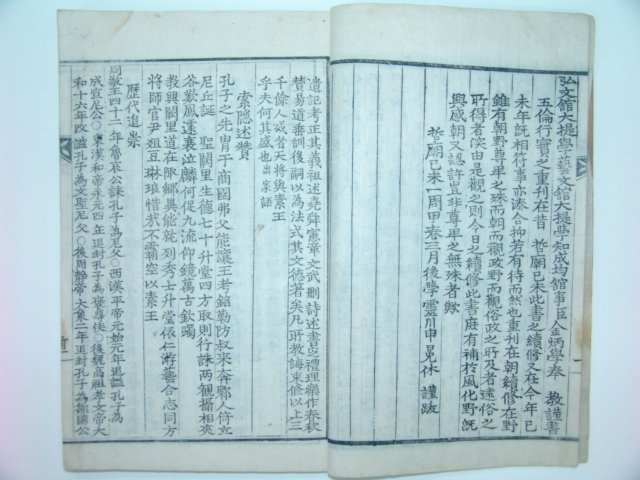 弘文館大提學藝文館大提學知成均館事臣金炳學奉　教謹書
五倫行實之重刊在昔　哲廟己未此書之續修又在今年己
未年既相符事亦湊合抑若有待而然也重刊在朝續修在野
雖有朝野尊卑之殊而朝而觀政野而觀俗政之所及者遠俗之
所得者深由是觀之則今日之續修此書庶有補於風化野既
興感朝又認許豈非尊卑之無殊者歟
哲廟己未一周甲春三月後學靈川申冕休謹跋
遺記考正其義祖述堯舜憲章文武刪詩述書定禮理樂作春秋
贊易道垂訓後嗣以為法式其文德著矣凡所教誨束脩以上三
千餘人或者天將與素王
乎夫何其盛也出家語
索隱述贊
孔子之先胄于商國弗父能讓正考銘勒防叔來奔鄹人倚立
尼丘誕聖闕里生德七十升堂四方取則行誅兩觀攝相夾
谷歎鳳遽衰泣麟何促九流仰鏡萬古欽躅
教興闕里道在鄹鄉異能就列秀士升堂依仁游藝合志同方
將師宮尹俎豆琳琅惜哉不霸空以素王
歷代追崇
周敬王四十一年魯哀公誄孔子為尼父○西漢平帝元始元年追諡孔子為褒
成宣尼公○東漢和帝永元四年追封孔子為褒尊侯○後魏高祖孝文帝大
和十六年改諡孔子為文聖尼父○後周靜帝大象二年追封孔子為鄒國公